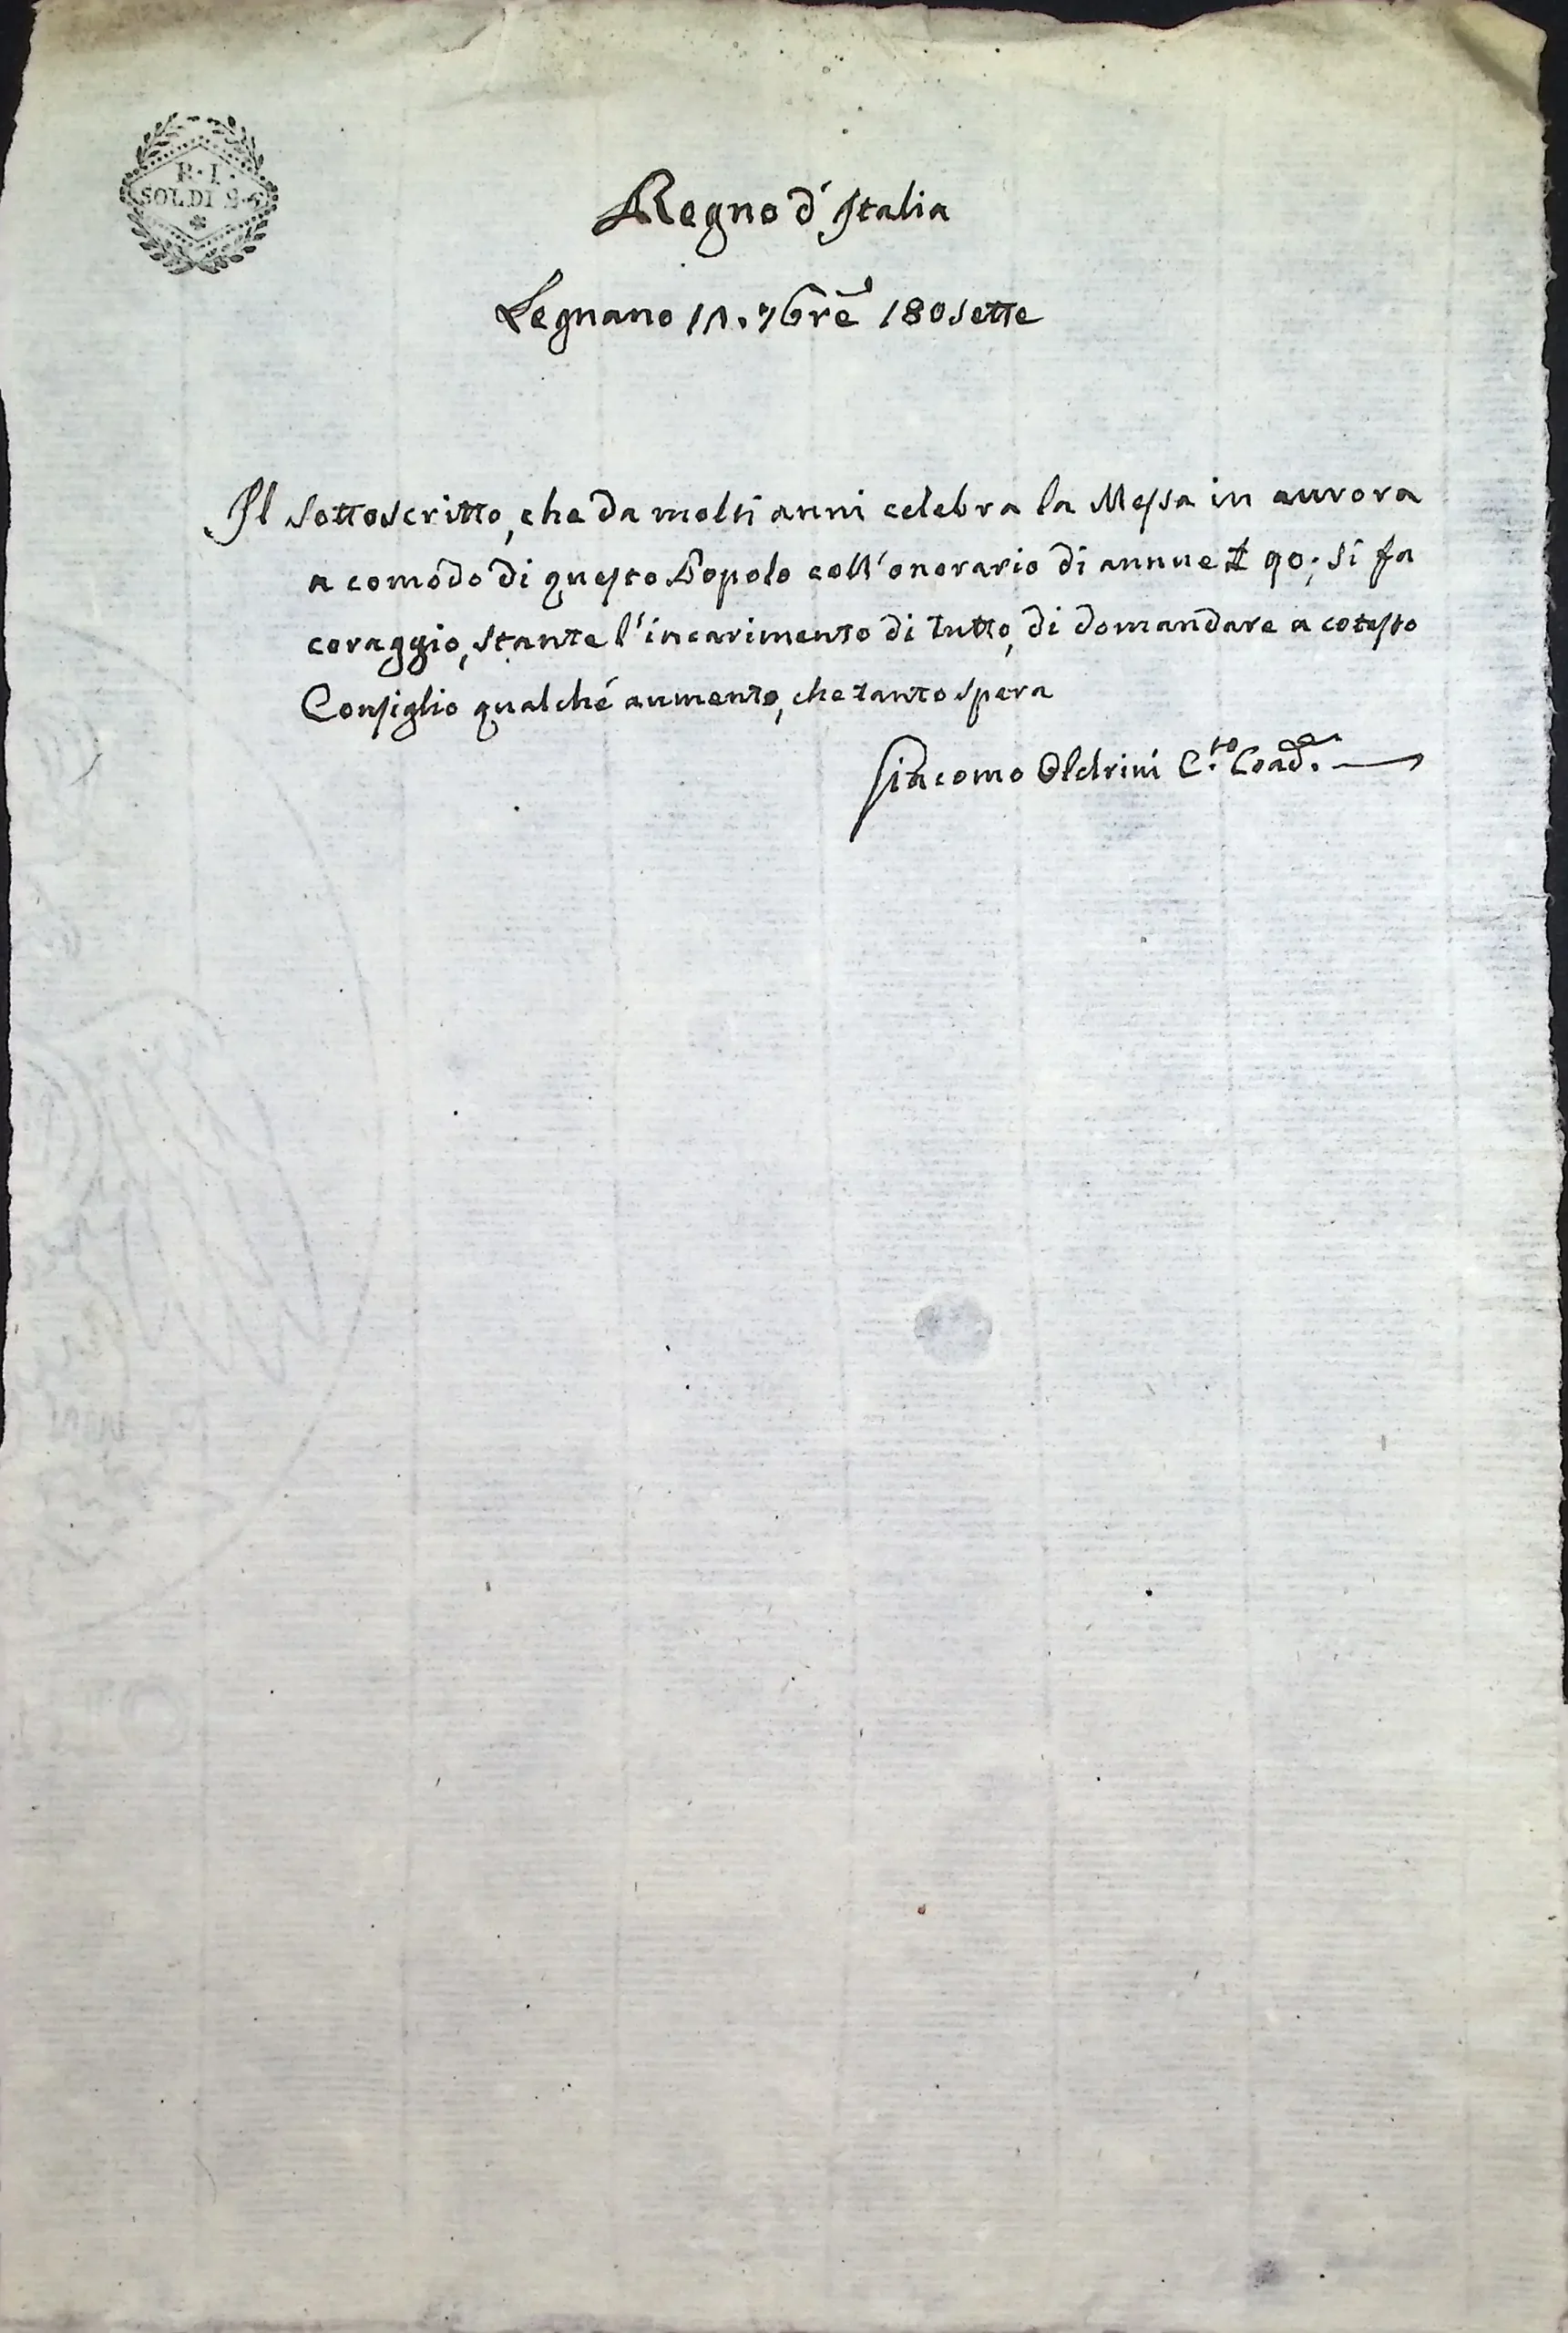 R. I.
SOLDI
Regno d'Italia
Legnano 7bre 180sette
Il sottoscritto, che da molti anni celebra la Messa in aurora
a comodo di questo Popolo coll'onorario di annue £ 90; si fa
coraggio, stante l'incarimento di tutto, di domandare a cotesto
Consiglio qualché aumento, che tanto spera
Giacomo Oldrini C.to Coad.e